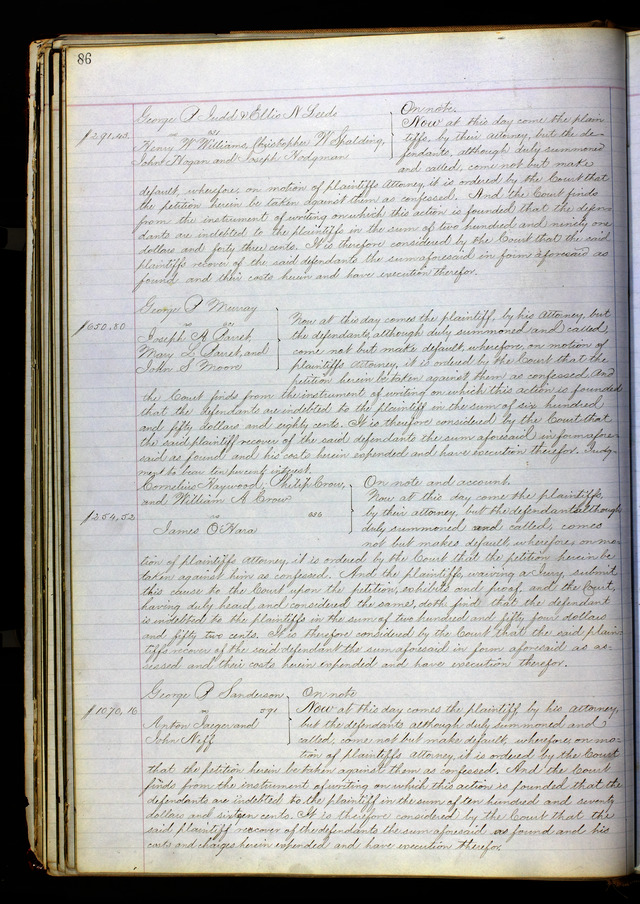 86
George P Judd & Ellis N Leeds
$291,43. vs 
Henry W Williams, Christopher W Spalding,
John Hogan and Joseph Hodgman
On note.
Now at this day come the plain
tiffs, by their attorney, but the de-
fendants, although duly summoned
and called, come not but make
default, wherefore, on motion of plaintiffs Attorney, it is ordered by the Court that
the petition herein be taken against them as confessed. And the Court finds
from the instrument of writing on which this action is founded that the defen
dants are indebted to the plaintiffs in the sum of two hundred and ninety one
dollars and forty three cents. It is therefore considered by the Court that the said
plaintiffs recover of the said defendants the sum aforesaid in form aforesaid as
found and their costs herein and have execution therefor.
George P Murray
$650,80 vs
Joseph A
Mary L and
John S Moore
Now at this day comes the plaintiff, by his Attorney, but
the defendants, although duly summoned and called,
come not but make default wherefore, on motion of
plaintiffs Attorney, it is ordered by the Court that the
petition herein be taken against them as confessed. And
the Court finds from the instrument of writing on which this action is founded
that the defendants are indebted to the plaintiff in the sum of six hundred
and fifty dollars and eighty cents. It is therefore considered by the Court that
the said plaintiff recover of the said defendants the sum aforesaid in form afore-
said as found and his costs herein expended and have execution therefor. Judg-
ment to bear ten per cent interest.
Cornelius Haywood, Philip Crow,
and William A Crow
$254,52 vs
James O'Hara
On note and account.
Now at this day come the plaintiffs,
by their attorney, but the defendant although
duly summoned and called, comes
not but makes default wherefore, on mo-
tion of plaintiffs Attorney, it is ordered by the Court that the petition herein be
taken against him as confessed. And the plaintiffs, waiving a Jury, submit
this cause to the Court upon the petition, exhibits and proof, and the Court,
having duly heard and considered the same, doth find that the defendant
is indebted to the plaintiffs in the sum of two hundred and fifty four dollars
and fifty two cents. It is therefore considered by the Court that the said plain-
tiffs recover of the said defendant the sum aforesaid in form aforesaid as as-
sessed and their costs herein expended and have execution therefor.
George P Sanderson
$1070,16 vs
Anton Jaeger and
John Neff
On note
Now at this day comes the plaintiff by his attorney,
but the defendants although duly summoned and
called, come not but make default, wherefore, on mo-
tion of plaintiffs attorney, it is ordered by the Court
that the petition herein be taken against them as confessed. And the Court
finds from the instrument of writing on which this action is founded that the
defendants are indebted to the plaintiff in the sum of ten hundred and seventy
dollars and sixteen cents. It is therefore considered by the Court that the
said plaintiff recover of the defendants the sum aforesaid as found and his
costs and charges herein expended and have execution therefor.